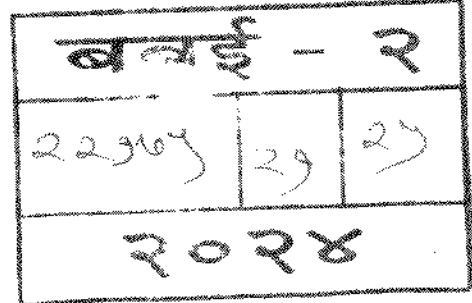 बबई - २
२२१७५ २१ २५
२०२४